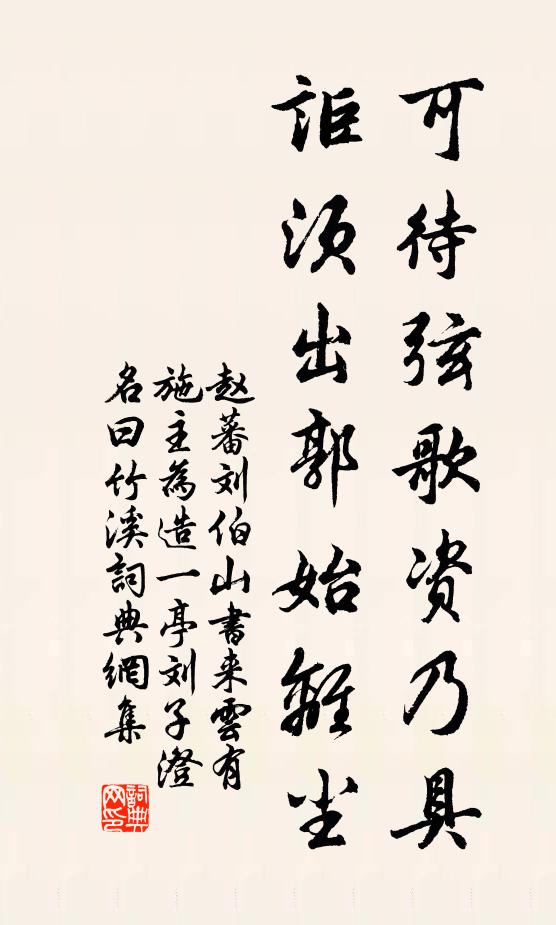 可待弦歌资乃具
讵须出郭始離尘
赵蕃刘伯山書来雲有
施主為造一亭刘子澄
名曰竹溪詞典網集
詞典网印